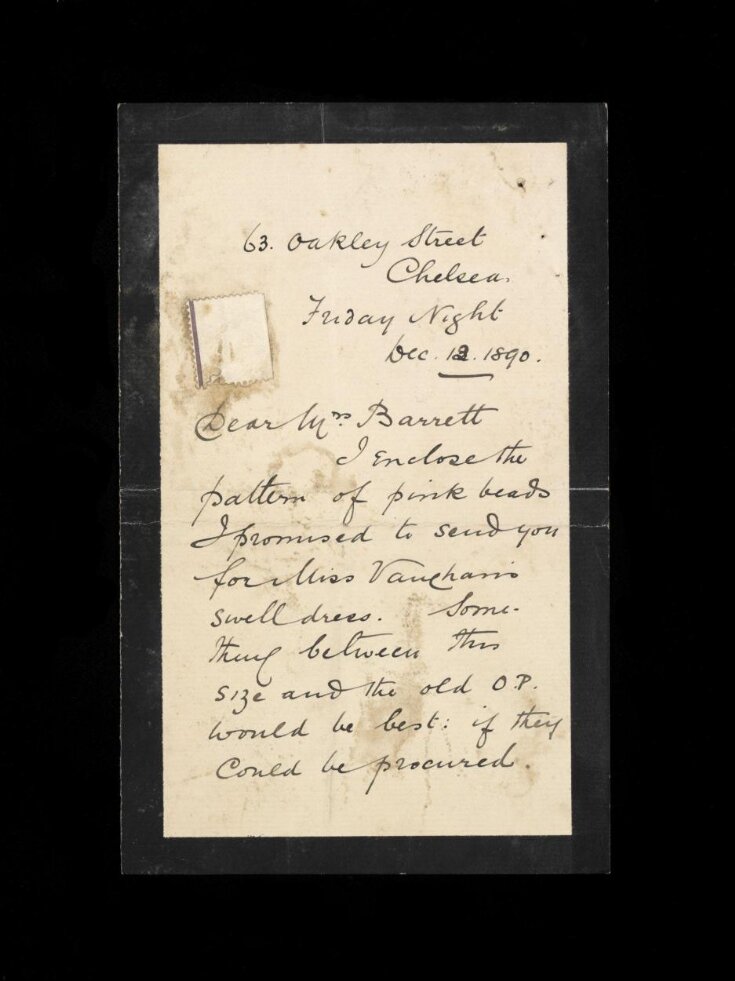 63. Oakley Street
Chelsea.
Friday Night
Dec. 12. 1890.
Dear Mrs Barrett
I enclose the
pattern of pink beads
I promised to send you
for Miss Vaughan's
swell dress. Some-
thing between this
size and the old O.P.
would be best: if they
could be procured.